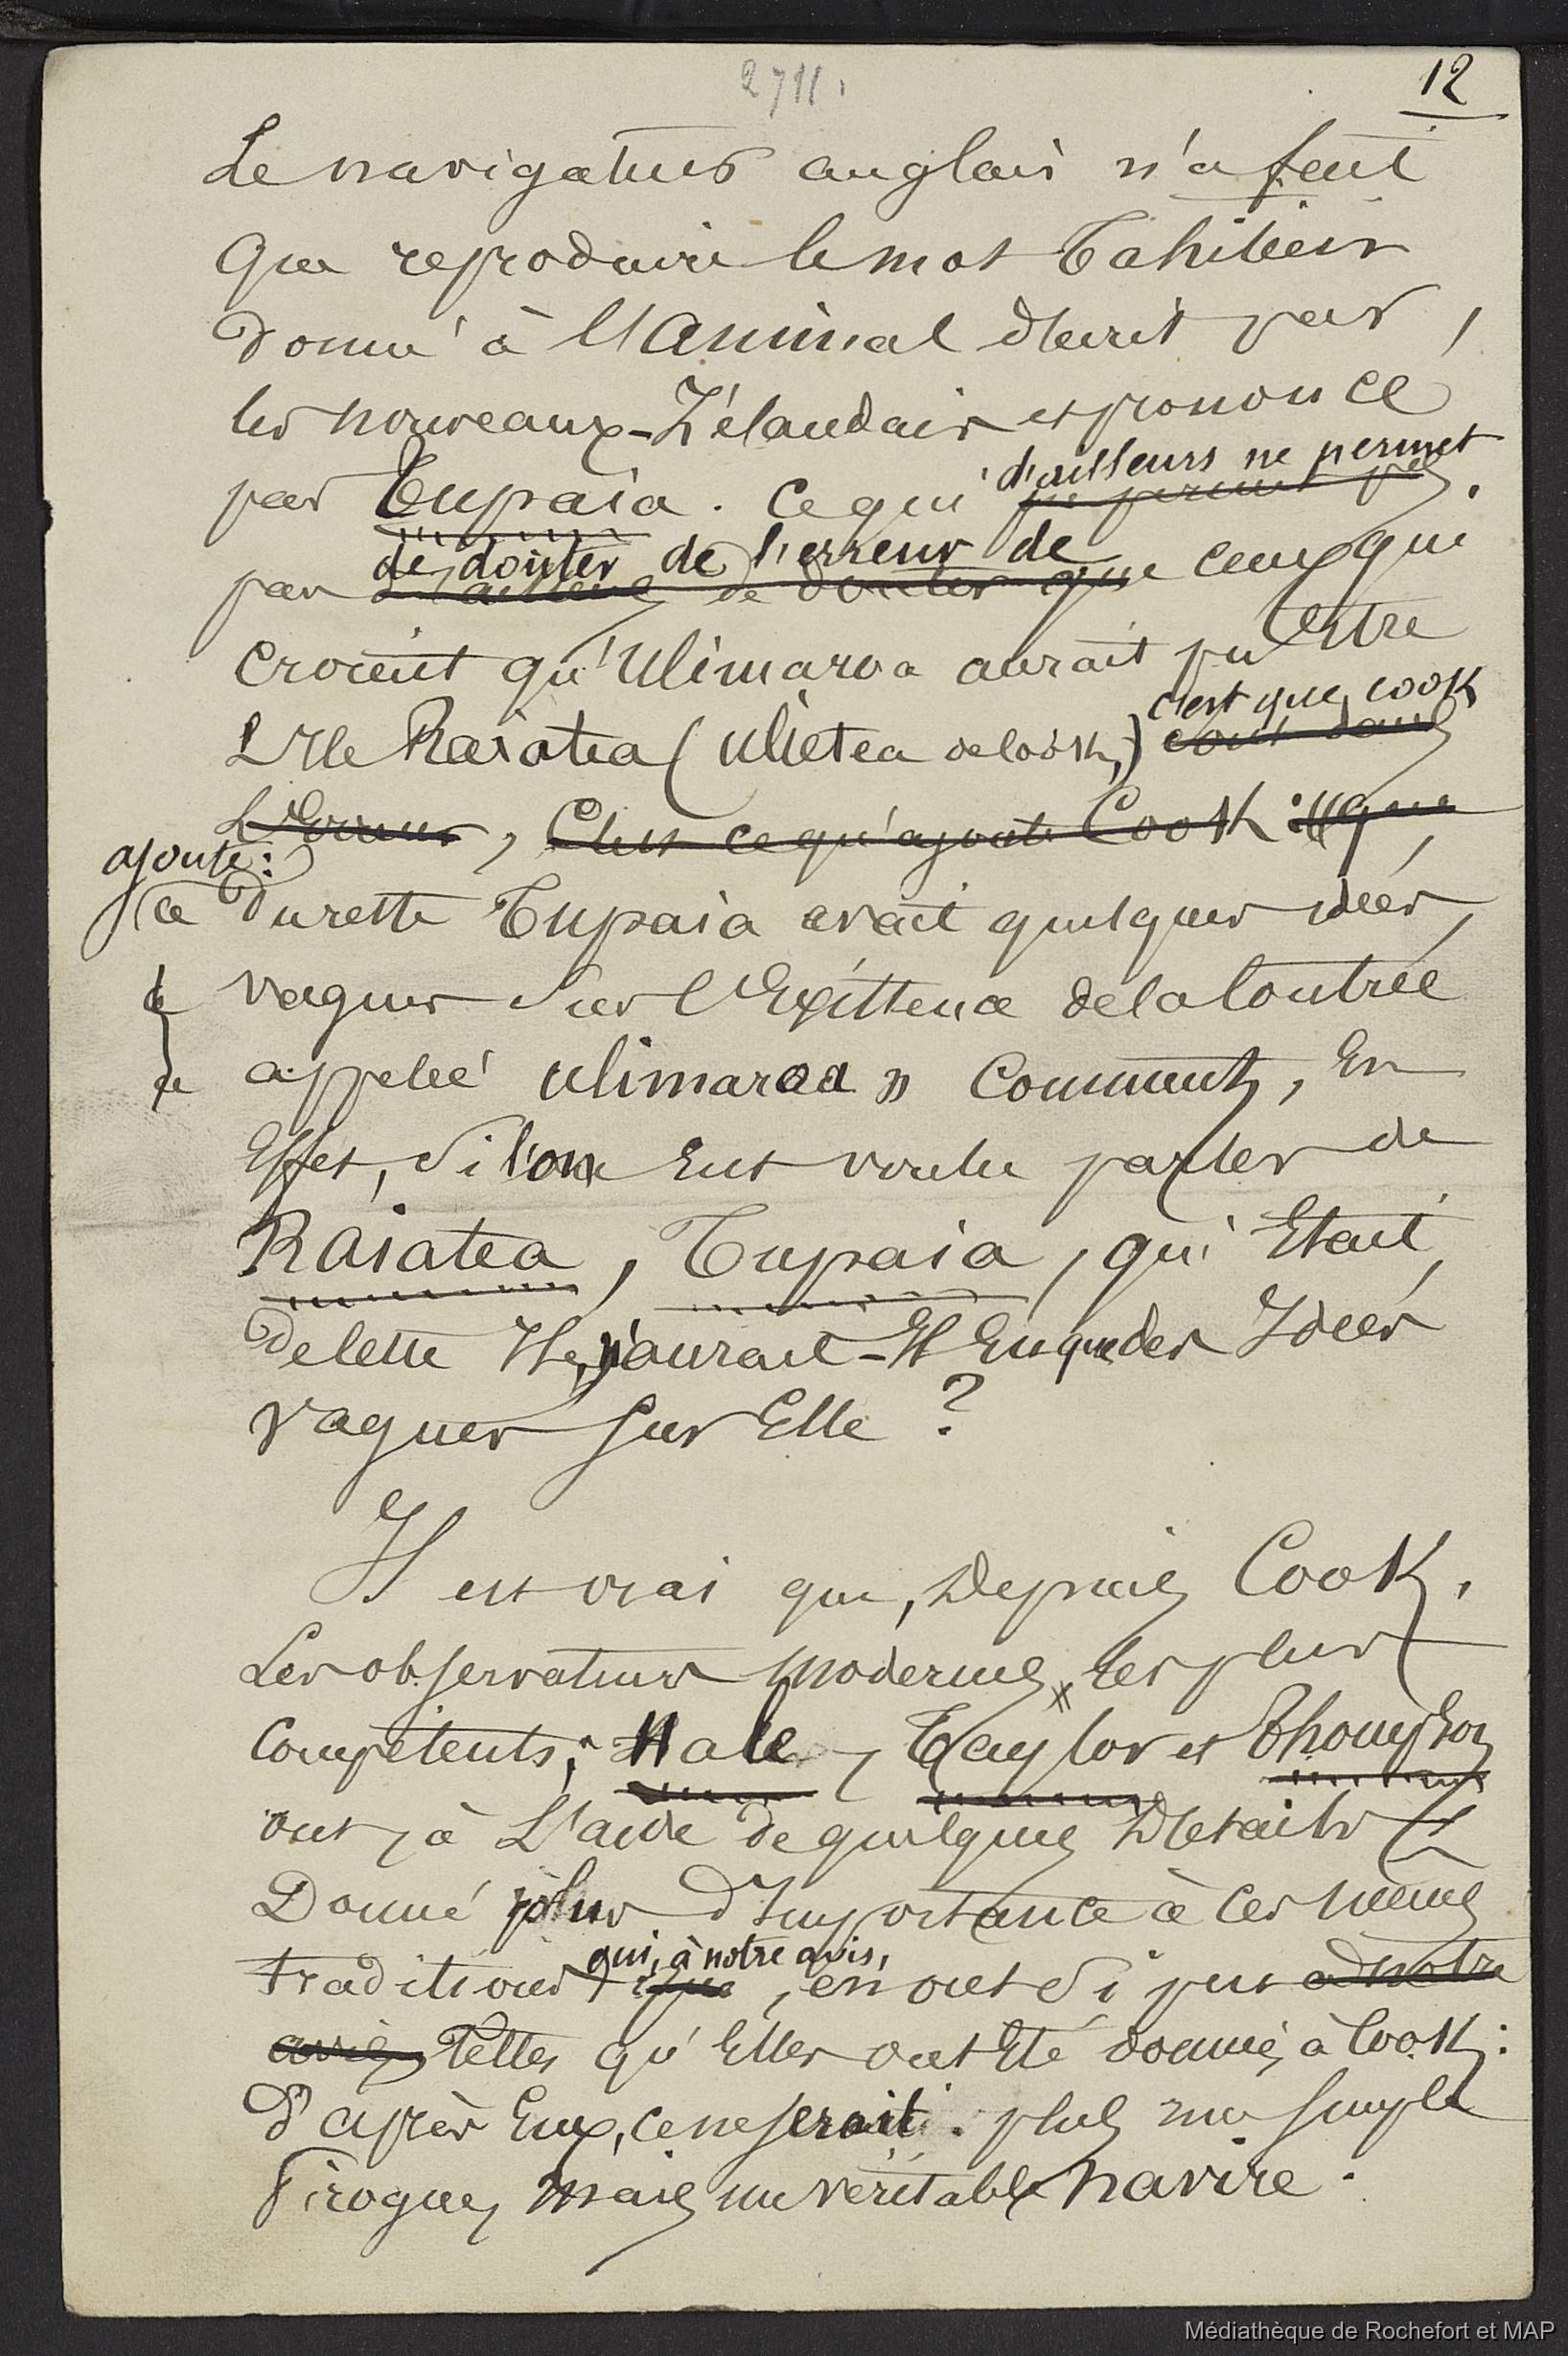 2711.
12
Le navigateur anglais n'a fait
que reproduire le mot Tahitien
donné à l'animal décrit par
les nouveaux-Zélandais et prononcé
par Tupaia. Ce qui d'ailleurs ne permet
ne permet pas
pas de douter de l'erreur de ceux qui
d'ailleurs de douter que
croient qu'Ulimaroa aurait pu être
L'Ile Raiatea (Ulietea de Cook,) c'est que Cook
sont dans
L'Erreur, C'est ce qu'ajoute Cook : "que
ajoute:
"Du reste Tupaia avait quelques idées
vagues sur l'Existence de la Contrée
appelée Ulimaroa" Comment, En
Effet, si l'on Eut voulu parler de
Raiatea, Tupaia, qui Etait
de cette Ile, n'aurait-Il Eu que des Idées
vagues sur Elle ?
Il est vrai que, Depuis Cook,
Les observateurs modernes les plus
Compétents, Hale, Taylor et Thompson
ont, à L'aide de quelques Détails
Donné plus d'Importance à ces mêmes
traditions qui, à notre avis, en ont si peu à notre
avis, telles qu'Elles ont Eté données à Cook:
D'après Eux, ce ne serait plus une simple
Pirogue, mais un véritable navire.
Médiathèque de Rochefort et MAP